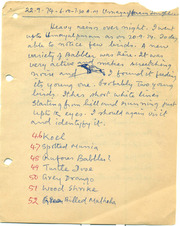 22-9-74 6.10-7.30 A.M
Heavy rain over night. I went
up to as on 20-9-74. I was
able to notice few birds. A new
variety of Babbler was there. It was
very active makes
noise and I found it feeding
its young one. probably two young
birds. It has short white line
starting from bill and running just
upto eyes. I should again visit
and identify it.
46 Koel
47 Spotted Munia
48 Rufous Babbler
49 Turtle Dove
50 Grey Drongo
51 Wood Shrike
52 Billed Malkoha